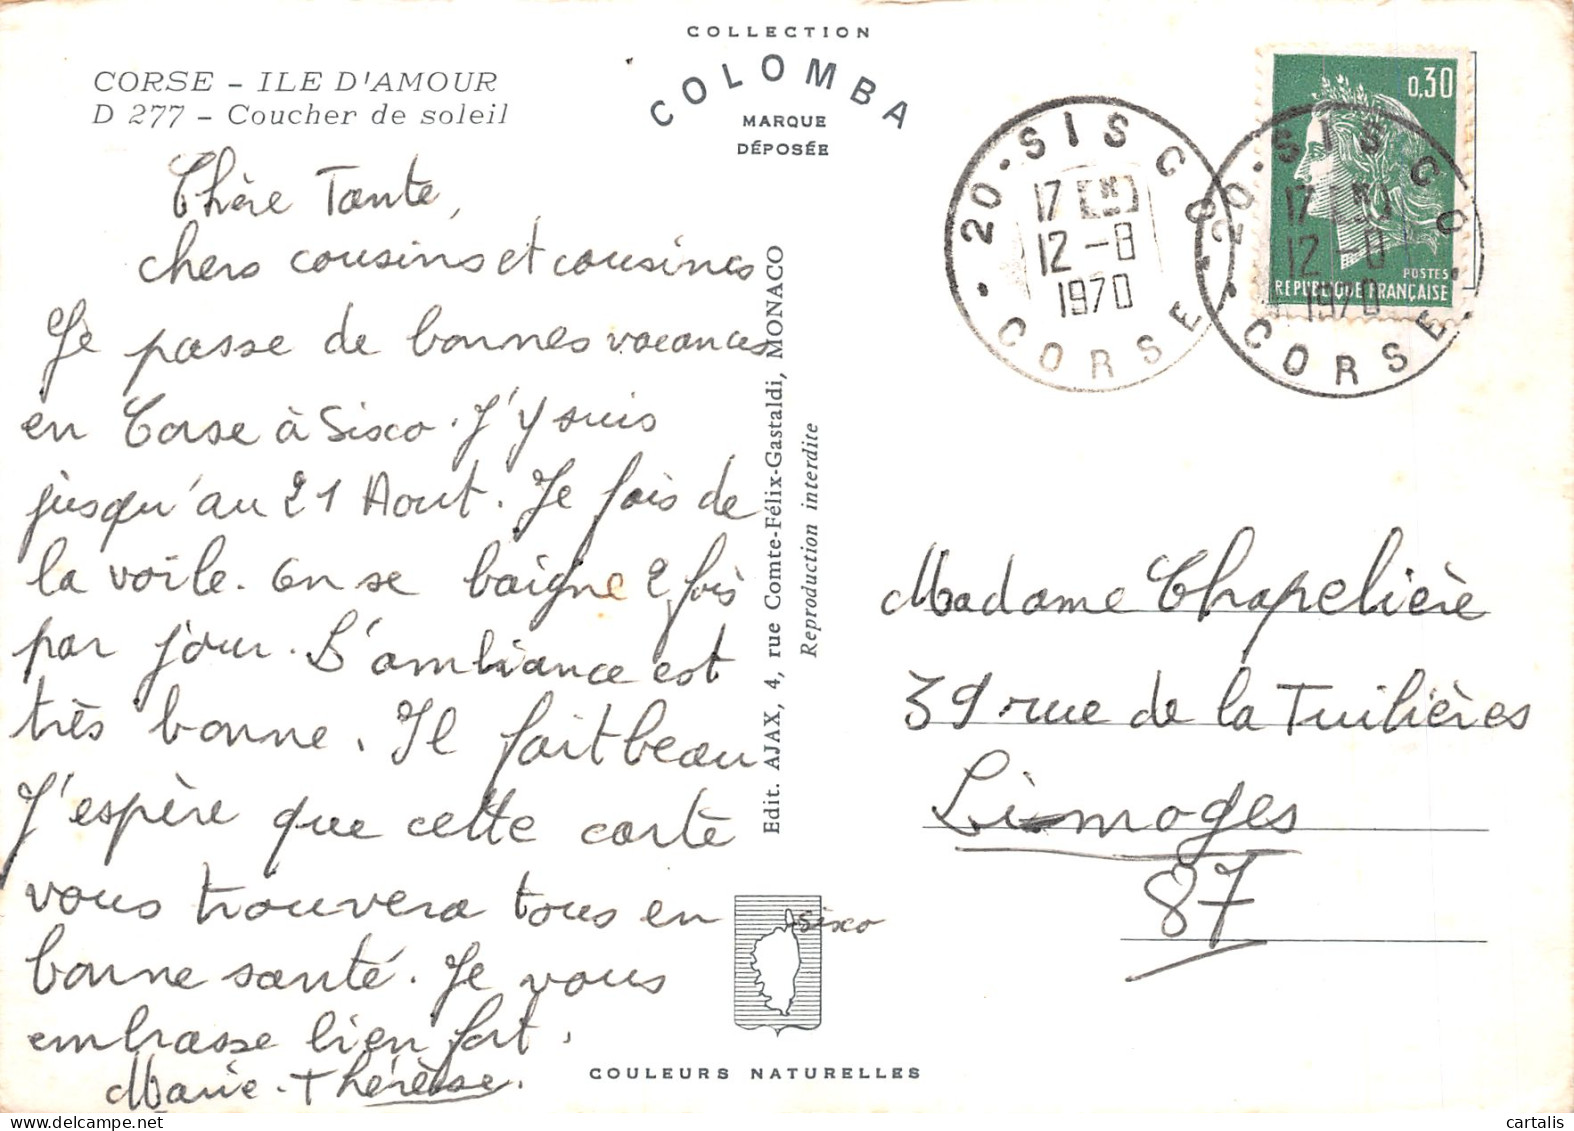 CORSE - ILE D'AMOUR
D 277 - Coucher de soleil
COLLECTION
COLOMBA
MARQUE
DÉPOSÉE
Chère Tante,
chers cousins et cousines
Je passe de bonnes vacances
en Corse à Sisco. J'y suis
jusqu'au 21 Aout. Je fais de
la voile. On se baigne 2 fois
par jour. L'ambiance est
très bonne. Il fait beau
J'espère que cette carte
vous trouvera tous en
bonne santé. Je vous
embrasse bien fort.
Marie-Thérèse.
Edit. AJAX, 4, rue Comte-Félix-Gastaldi, MONACO
Reproduction interdite
Sisco
COULEURS NATURELLES
20 - SISCO
17 H
12 - 8
1970
CORSE
20 - SISCO
17 H
12 - 8
1970
CORSE
0,30
POSTES
REPUBLIQUE FRANÇAISE
Madame Chapelière
39 rue de la Tuilières
Limoges
87
www.cartalis.com